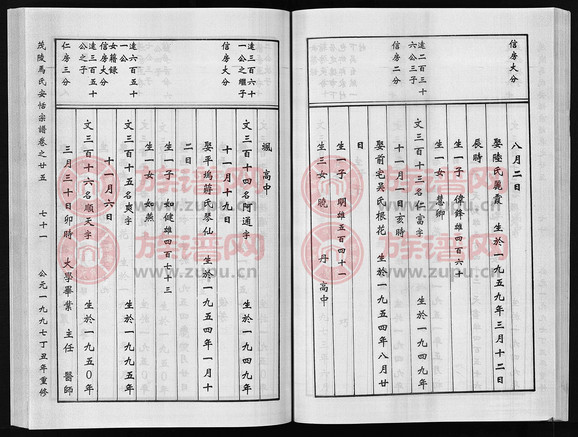 信房大分
八月二日
娶陸氏麗霞 生於一九五九年三月十二日
辰時
生一子 偉鋒雄四百六十
生一女 慧卿
達二百三十
六公三子
信房二分
文三百十三名仁富字 生於一九四九年
十一月一日亥時
娶前宅吴氏根花 生於一九五四年八月廿
日
生一子 明雄五百四十一
生三女 曉 丹 高中
楓 高中
達三百六十
一公之繼子
信房大分
文三百十四名阿通字 生於一九五〇年
十一月十九日
娶平塢蔣氏琴仙 生於一九五四年一月十
二日
生一子 如健雄四百七十三
生一女 如燕
達六百五十
一公
女籍錄
信房大分
文三百十五名爽字 生於一九九五年
十一月六日
達三百五十
公之子
仁房三分
文三百十六名順天字 生於一九五〇年
三月三十日卯時 大學畢業 主任 醫師
茂陵馬氏安恬宗譜卷之廿五 七十一 公元一九九七丁丑年重修
族谱网
www.zupu.cn
族谱网
www.zupu.cn